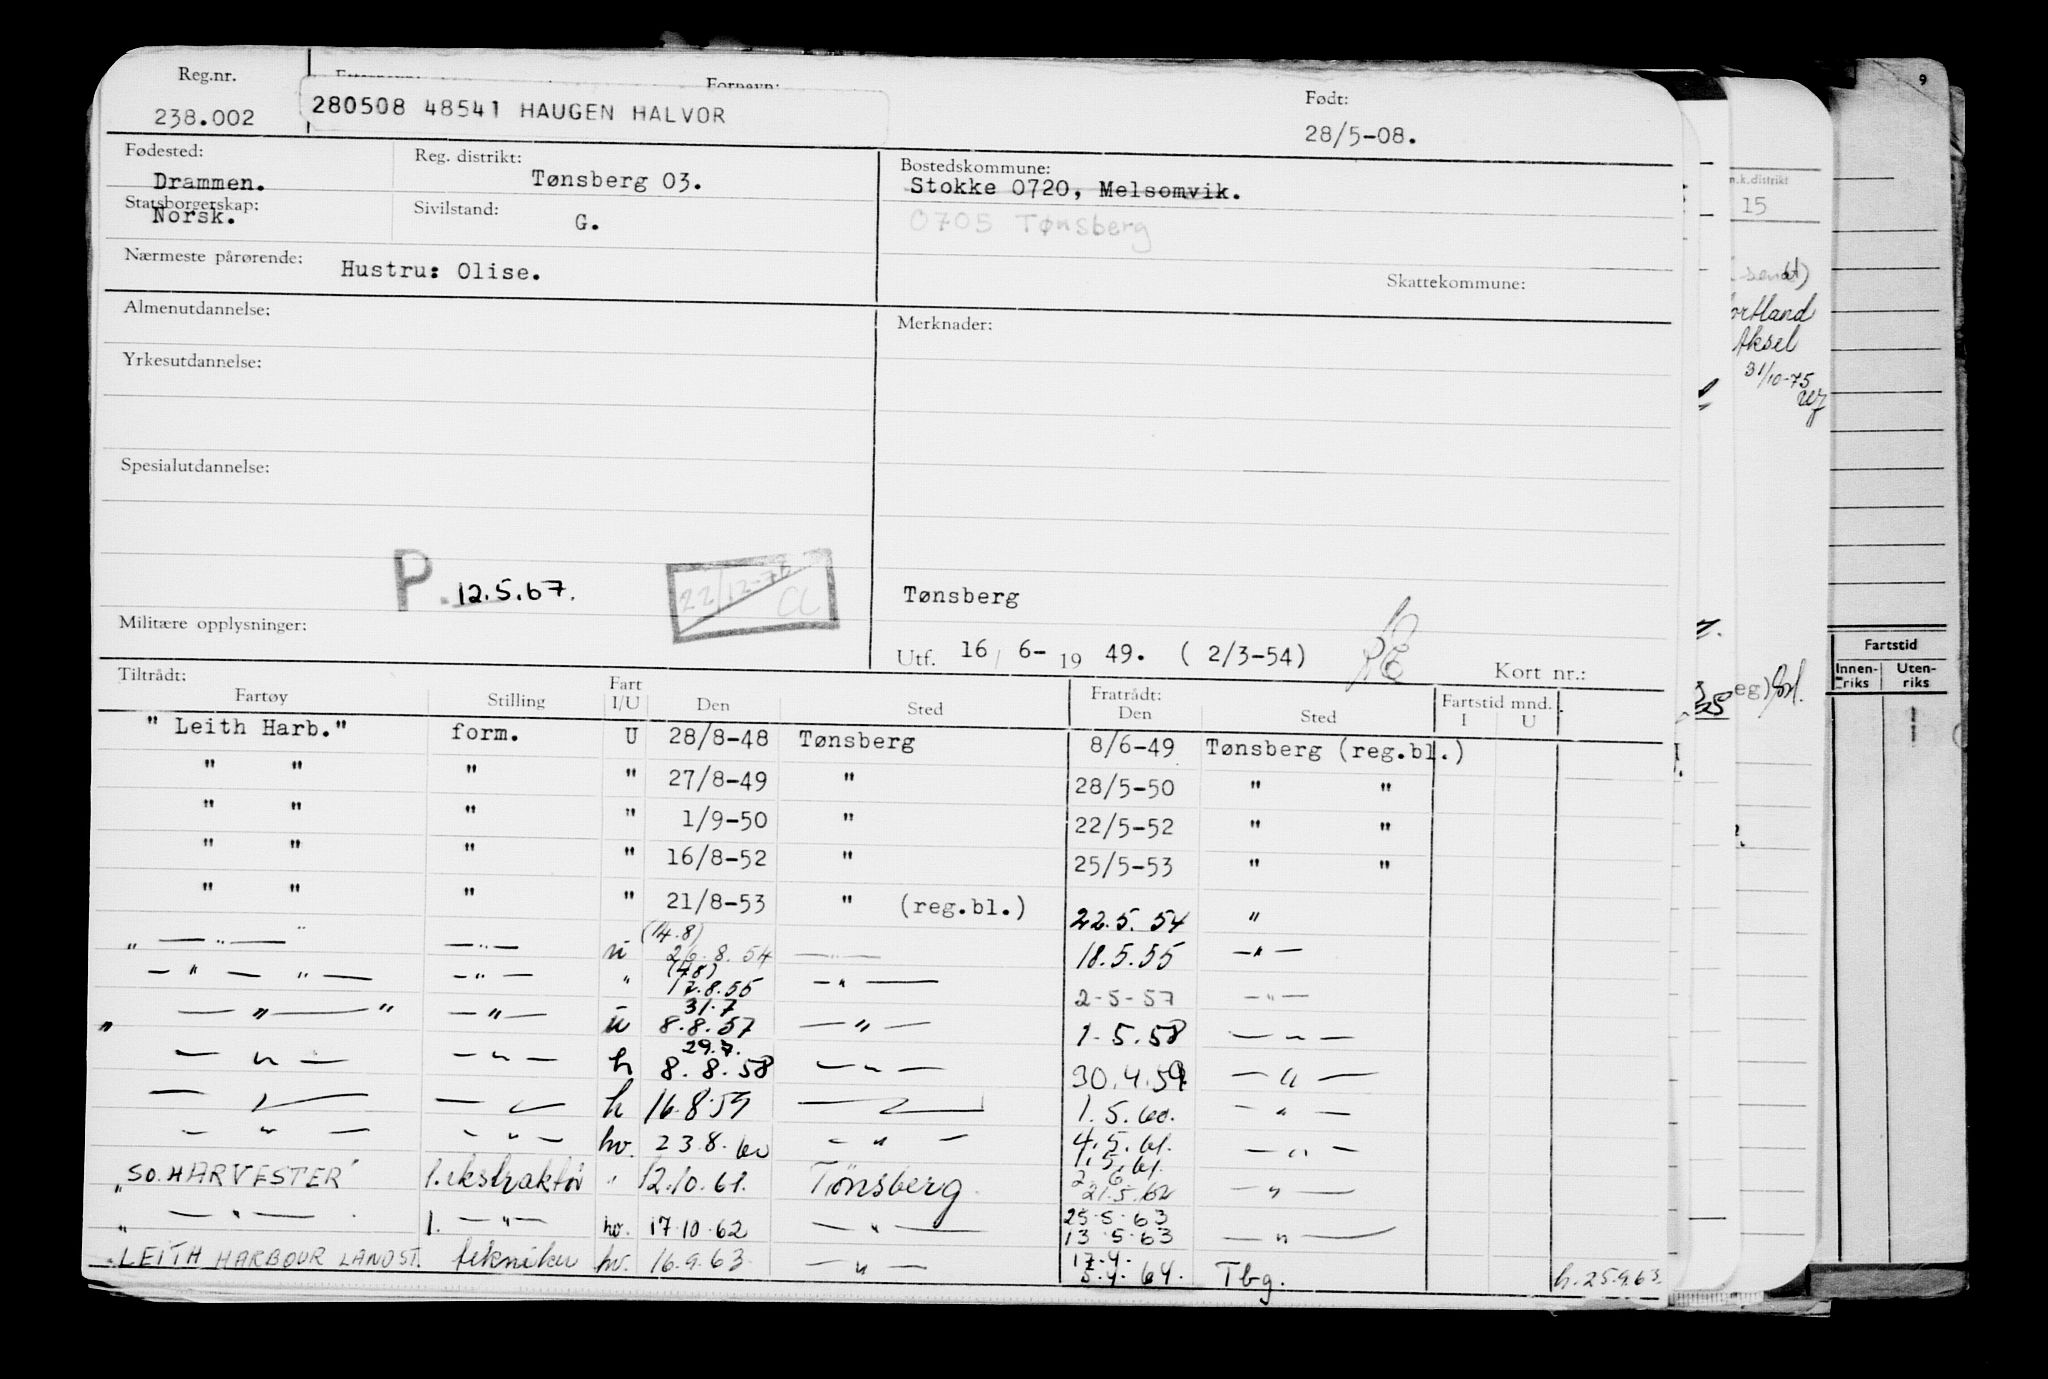 Reg.nr. Fornavn: Født:
238.002 280508 48541 HAUGEN HALVOR 28/5-08.
Fødested: Reg. distrikt: Bostedskommune:
Drammen. Tønsberg 03. Stokke 0720, Melsomvik.
Statsborgerskap: Sivilstand: 0705 Tønsberg
Norsk. G.
Nærmeste pårørende: Hustru: Olise. Skattekommune:
Almenutdannelse: Merknader:
Yrkesutdannelse:
Spesialutdannelse:
P. 12.5.67. 22/12-78 CC Tønsberg
Militære opplysninger: Utf. 16/ 6- 19 49. ( 2/3-54) Kort nr.:
Tiltrådt: Fart Fratrådt: Fartstid mnd.
Fartøy Stilling I/U Den Sted Den Sted I U
" Leith Harb." form. U 28/8-48 Tønsberg 8/6-49 Tønsberg (reg.bl.)
" " " " 27/8-49 " 28/5-50 " "
" " " " 1/9-50 " 22/5-52 " "
" " " " 16/8-52 " 25/5-53 " "
" " " " 21/8-53 " (reg.bl.) 22.5.54 "
(14.8)
" — " — " — " — u 26.8.54 — " — 18.5.55 — " —
(7.8)
— " — " — — " — " 17.8.55 — " — 2-5-57 — " —
31.7
" — " — " — " — u 8.8.57 — " — 1.5.58 — " —
29.7.
— " — — " — h 8.8.58 — " — 30.4.59 — " —
— " — — " — h 16.8.59 — " — 1.5.60. — " —
— " — — " — hv. 23.8.60 — " — 4.5.61. — " —
1.5.61.
"SO. HARVESTER" 1. ekstraktør " 12.10.61. Tønsberg. 2.6. 21.5.62 — " —
25.5.63
" — " — 1. — " — hv. 17.10.62 — " — 13.5.63 — " —
17.4.
"LEITH HARBOUR LANDST. tekniker hv. 16.9.63. — " — 5.4.64. Tbg. h.25.9.63.
9
m.k.distrikt
15
(sendt)
Aksel
31/10-75
Fartstid
Innenriks Utenriks